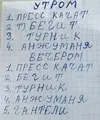 УТРОМ
1. ПРЕСС КАЧАТ
2. БЕГИТ
3. ТУРНИК
4. АНЖУМАНЯ
ВЕЧЕРОМ
1. ПРЕСС КАЧАТ
2. БЕГИТ
3. ТУРНИК
4. АНЖУМАНЯ
5. ГАНТЕЛИ